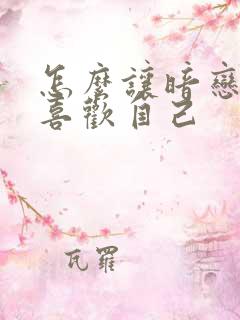 怎麼讓暗戀
喜歡自己
瓦羅